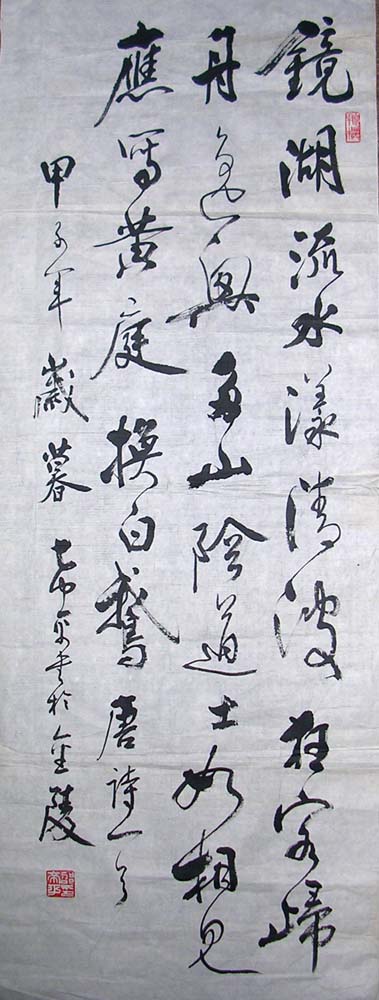 鏡湖流水漾清波狂客歸
舟逸興多山陰道士如相見
應寫黄庭換白鵝 唐詩一首
甲子年歲暮 書於金陵